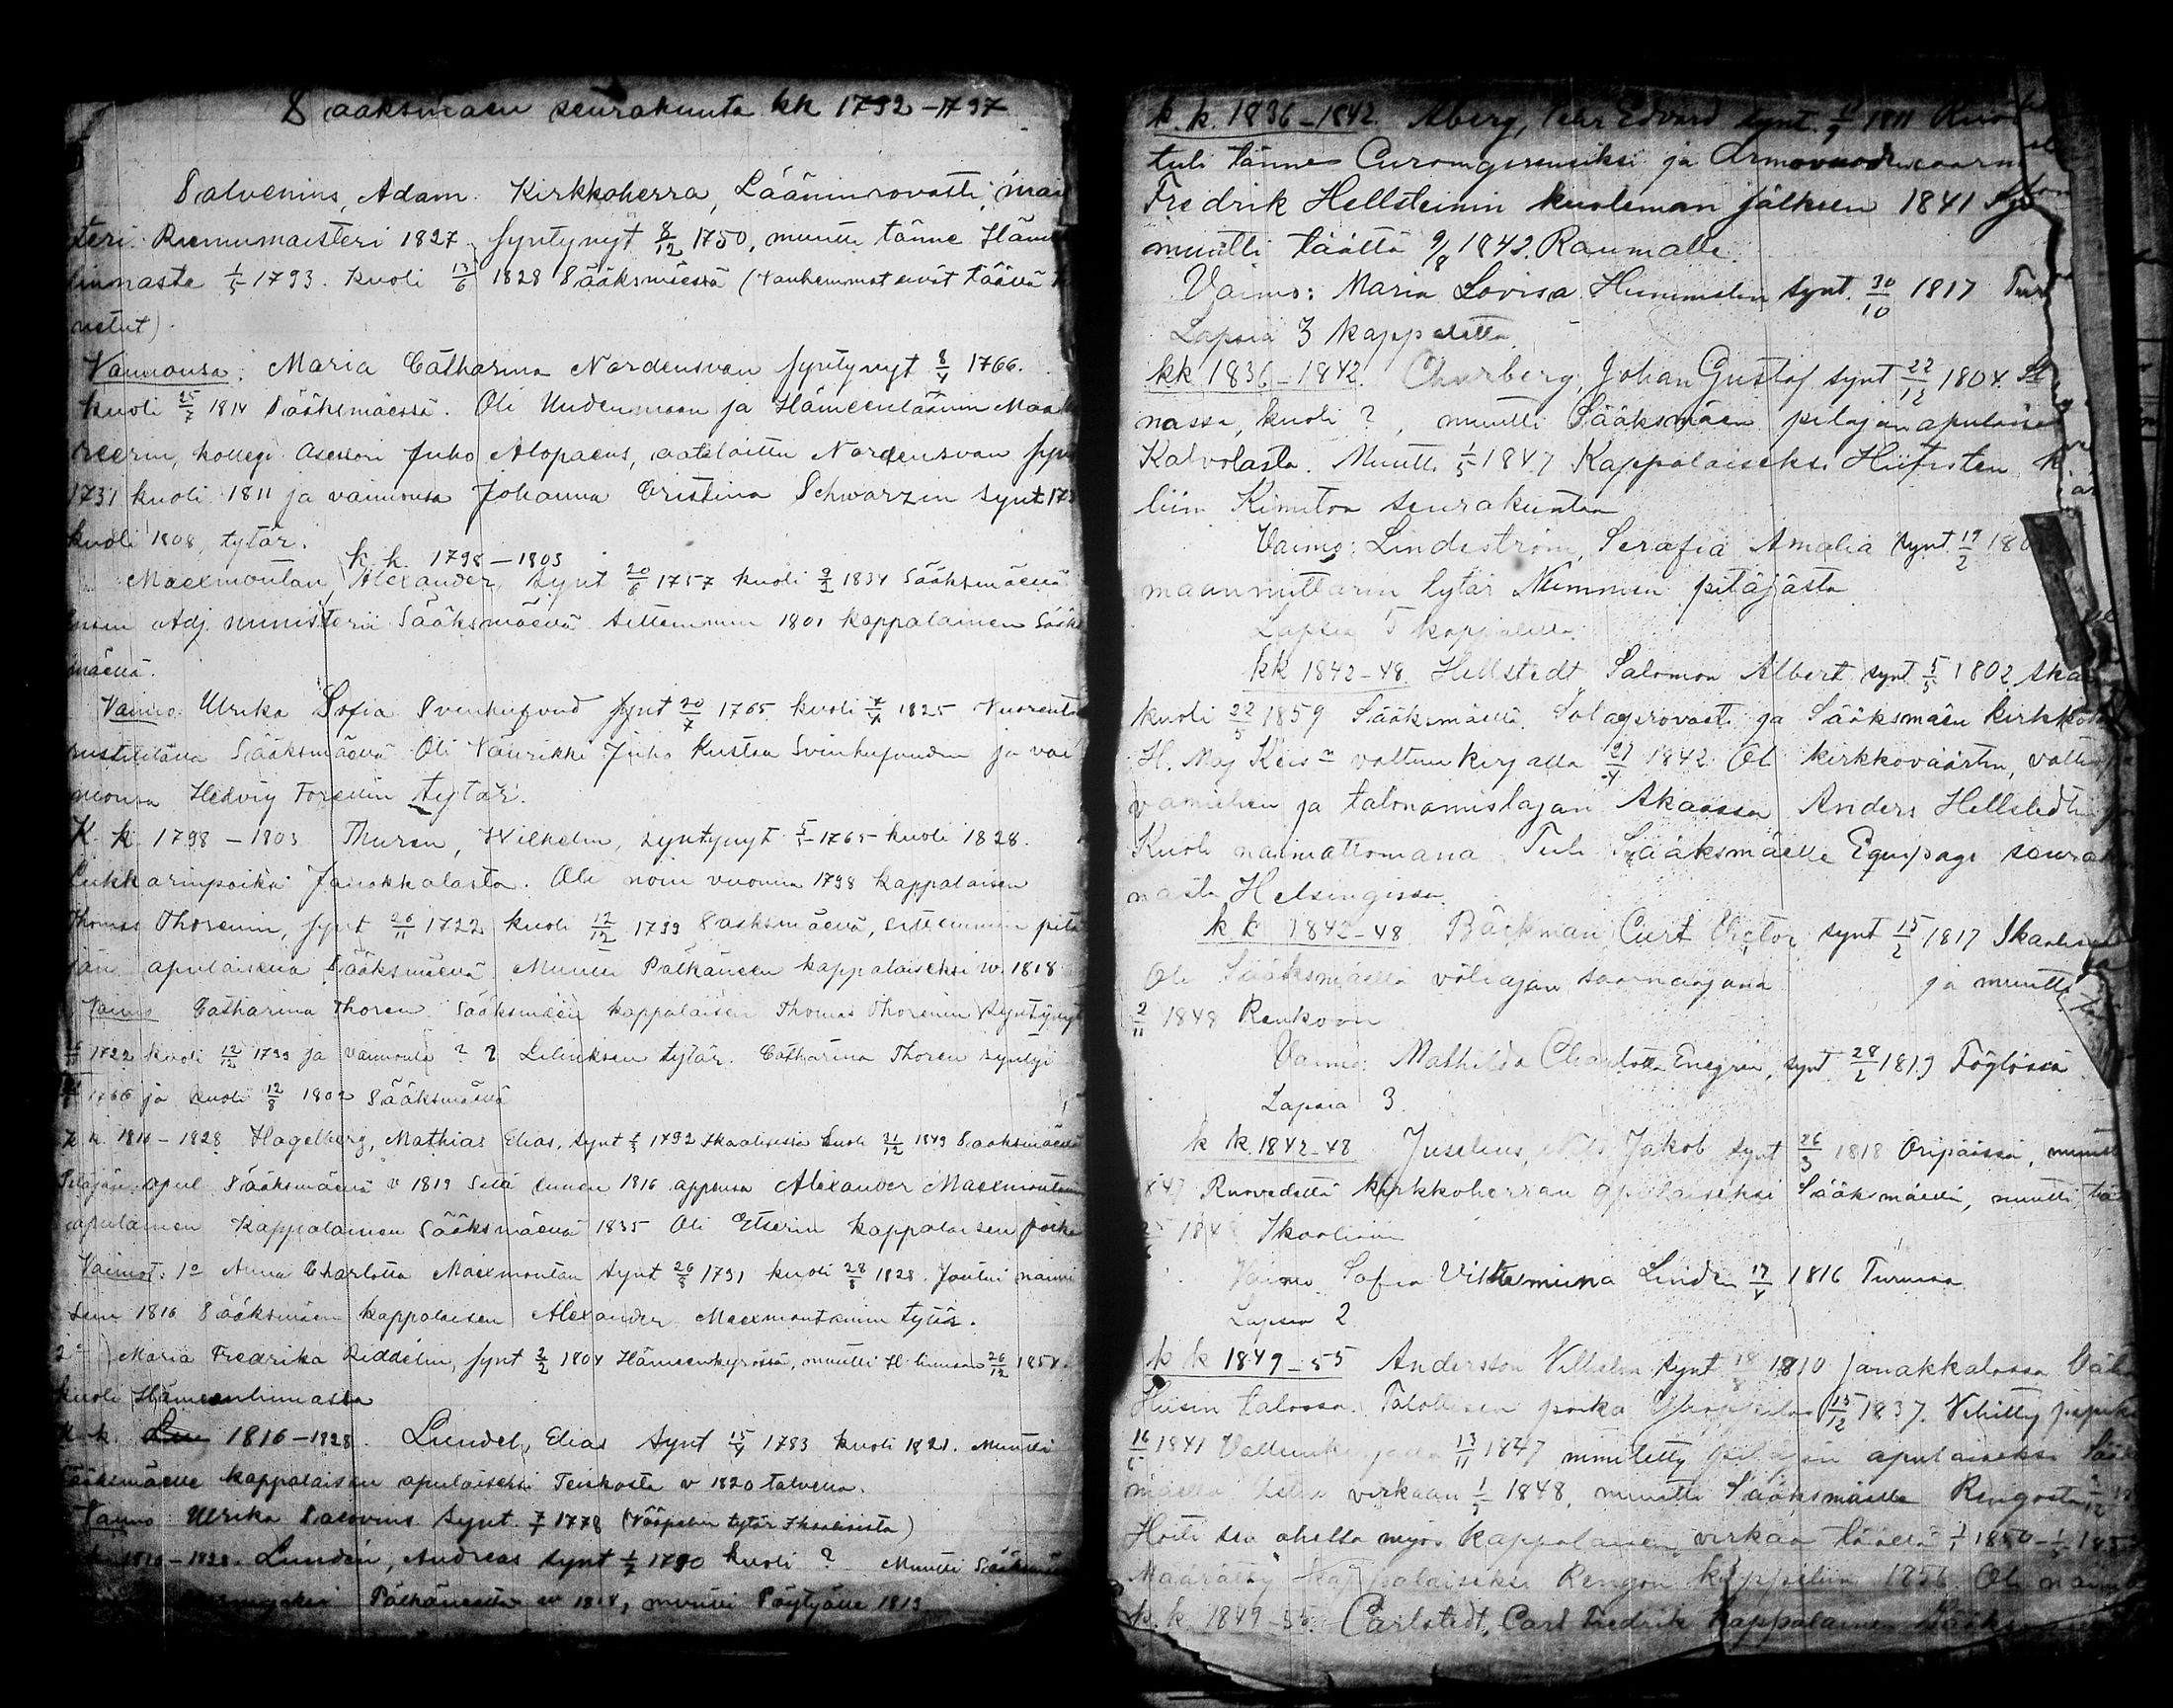 Sääksmäen seurakunta kk 1792-1797
Salvenius, Adam. Kirkkoherra, Lääninrovasti,
teri. Riemumaisteri 1827. Syntynyt 8/12 1750, muutti tänne Häme
linnasta 1/5 1793. Kuoli 13/6 1828 Sääksmäessä (Vanhemmat eivät täällä
netut).
Vaimonsa: Maria Catharina Nordensvan syntynyt 8/4 1766.
Kuoli 25/7 1814 Sääksmäessä. Oli Uudenmaan ja Hämeenläänin
kollegi Asessori Juho Alopaeus, aateloittu Nordensvan syn
1731 kuoli 1811 ja vaimonsa Johanna Cristina Schwarzin synt 17
kuoli 1808, tytär.
k. k. 1798-1803
Maexmontan, Alexander, synt 20/6 1757 kuoli 9/2 1834 Sääksmäessä
Adj. ministerii Sääksmäessä sittemmin 1801 kappalainen Sääks
mäessä.
Vaimo: Ulrika Sofia Svenhufvud synt 20/7 1765 kuoli 7/4 1825
Sääksmäessä Oli Vänrikki Juho Kustaa Svinhufvudin ja vai
monsa Hedvig Forellin tytär.
K. k. 1798-1803 Thuren, Wilhelm, syntynyt 5/5 1765 kuoli 1828.
Lukkarinpoika Janakkalasta. Oli noin vuonna 1798 kappalaisen
Thomas Thorenin, synt 26/11 1722 kuoli 12/12 1799 Sääksmäessä, sittemmin pitä
jän apulaisena Sääksmäessä. Muutti Pälkäneen kappalaiseksi v. 1818
Vaimo Catharina Thoren Sääksmäen kappalaisen Thomas Thorenin syntynyt
1722 kuoli 12/12 1799 ja vaimonsa ? ? Leliuksen tytär. Catharina Thoren syntyi
1766 ja kuoli 12/8 1802 Sääksmäessä
k. k. 1816-1828 Hagelberg, Mathias Elias, synt 1792 Ikaalisissa kuoli 21/12 1849 Sääksmäessä
Pitäjän apul Sääksmäessä v 1819 Sitä ennen 1816 appensa Alexander Maexmontanin
apulainen Kappalainen Sääksmäessä 1835 Oli Etserin kappalaisen poika
Vaimot: 1o Anna Charlotta Maexmontan synt 26/8 1791 kuoli 28/8 1828. Joutui naimi
seen 1816 Sääksmäen kappalaisen Alexander Maexmontanin tytär.
2o) Maria Fredrika Riddelin, synt 2/2 1804 Hämeenkyrössä, muutti H:linnaan 26/12 1854.
kuoli Hämeenlinnassa
k. k. 1816-1828. Lundel, Elias synt 15/4 1783 kuoli 1821. Muutti
Sääksmäelle kappalaisen apulaiseksi Teiskosta v 1820 talvella.
Vaimo Ulrika Salovius synt. 7/7 1778 (Vääpelin tytär Ikaalisista)
1816-1828. Lundén, Andreas synt 1/2 1790 kuoli ? Muutti Sääksmä
Pälkäneeltä v 1818, muutti Pöytyälle 1819
k. k. 1836-1842. Åberg, Pehr Edvard synt. 11/9 1811
tuli tänne Curamgerensiksi ja Armovuodensaarn
Fredrik Hellsteinin kuoleman jälkeen 1841
muutti täältä 9/8 1842. Raumalle.
Vaimo: Maria Lovisa Hummelin synt. 30/10 1817
Lapsia 3 kappaletta.
kk 1836-1842. Churberg, Johan Gustaf synt 22/12 1804.
nassa, kuoli ?, muutti Sääksmäen pitäjän apulais
Kalvolasta. Muutti 1/5 1847 Kappalaiseksi Hiitisten k.
liin Kimiton seurakuntaa
Vaimo: Lindeström, Serafia Amalia synt. 19/2 180
maanmittarin tytär Nummen pitäjästä
Lapsia 5 kappaletta
kk 1842-48. Hellstedt, Salomon Albert synt 5/5 1802 Akaa
kuoli 22/5 1859 Sääksmäellä. Salagprovasti ja Sääksmäen kirkkoh
H. Maj Keis:n valtuuskirjalla 27/4 1842. Oli kirkkoväärtin, valtiop
vamiehen ja talonomistajan Akaassa Anders Hellstedtin
Kuoli naimattomana. Tuli Sääksmäelle Equipage seurak
nasta Helsingissä.
k k 1842-48 Bäckman, Curt Victor synt 15/2 1817 Ikaalis
Oli Sääksmäellä väliajan saarnaajana ja muutti
2/11 1848 Renkoon
Vaimo: Mathilda Charlotta Enegren, synt 28/2 1819 Föglössä
Lapsia 3.
k k. 1842-48 Juselius, Nils Jakob synt 26/3 1818 Oripäässä, muutt
1847 Ruovedeltä kirkkoherran apulaiseksi Sääksmäellä, muutti tä
1848 Ikaalisiin
Vaimo Sofia Vilhelmiina Linden 17/4 1816 Turussa
Lapsia 2
k k 1849-55 Anderston Vilhelm synt 18/ 1810 Janakkalassa
Hiisin talossa. Talollisen poika Yliopp 15/12 1837. Vihitty papiksi
16/6 1841 Valtuuskirjalla 13/11 1847 nimitetty pitäjän apulaiseksi Sääks
mäellä astui virkaan 1/5 1848, muutti Sääksmäelle Rengosta
Hoiti sen ohella myös kappalaisen virkaa täällä 1850-
Määrätty kappalaiseksi Rengon kappeliin 1856. Oli naim
k. k. 1849-55. Carlstedt, Carl Fredrik kappalainen Sääks